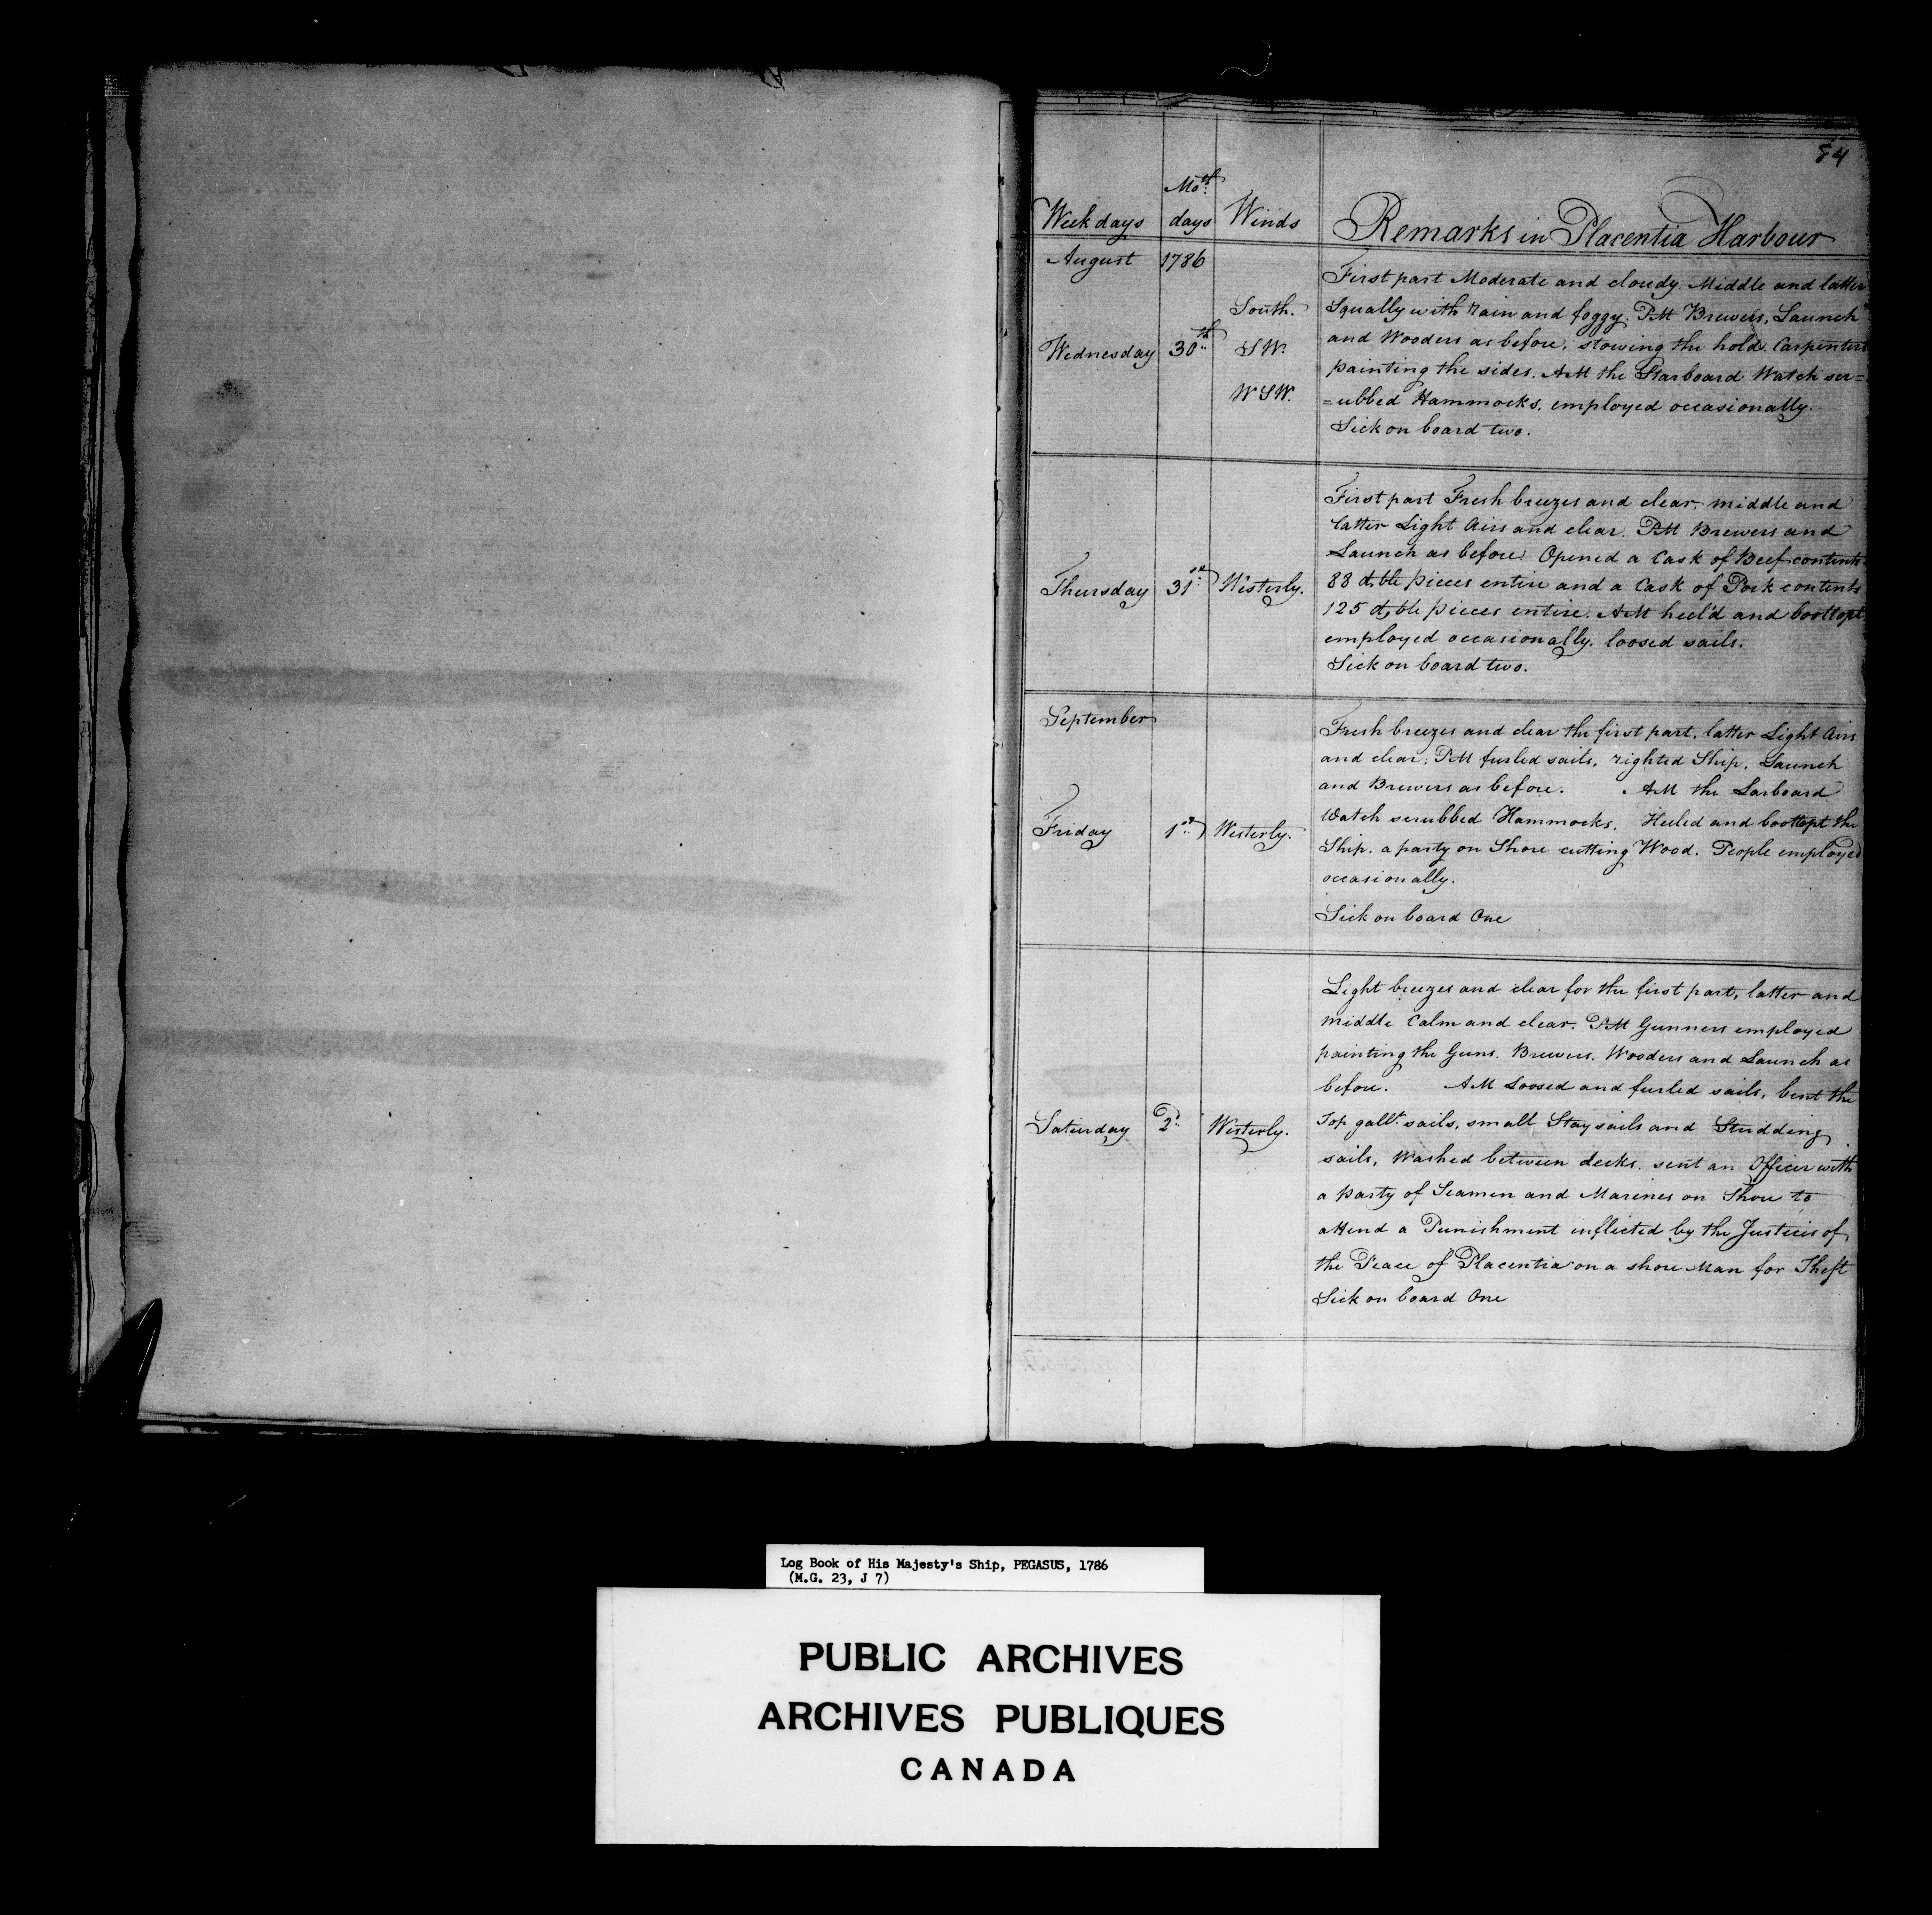 84
Week days Mo.th days Winds Remarks in Placentia Harbour
August 1786
Wednesday 30th South. SW. WSW.
First part Moderate and cloudy. Middle and latter
Squally with rain and foggy. PM Brewers, Launch
and Wooders as before, stowing the hold. Carpenters
painting the sides. AM the Starboard Watch scr=
=ubbed Hammocks, employed occasionally.
Sick on board two.
Thursday 31st Westerly.
First part Fresh breezes and clear, middle and
latter Light Airs and clear. PM Brewers and
Launch as before. Opened a Cask of Beef contents
88 dble pieces entire and a Cask of Pork contents
125 dble pieces entire. AM heel'd and boottopt
employed occasionally. loosed sails.
Sick on board two.
September
Friday 1st Westerly.
Fresh breezes and clear the first part, latter Light Airs
and clear. PM furled sails, righted Ship. Launch
and Brewers as before. AM the Larboard
Watch scrubbed Hammocks. Heeled and boottopt the
Ship. a party on Shore cutting Wood. People employed
occasionally.
Sick on board One
Saturday 2d Westerly.
Light breezes and clear for the first part, latter and
middle Calm and clear. PM Gunners employed
painting the Guns. Brewers. Wooders and Launch as
before. AM Loosed and furled sails, bent the
Top gallt. sails, small Stay sails and Studding
sails, Washed between decks. sent an Officer with
a party of Seamen and Marines on Shore to
attend a Punishment inflicted by the Justices of
the Peace of Placentia on a shore Man for Theft
Sick on board One
Log Book of His Majesty's Ship, PEGASUS, 1786
(M.G. 23, J 7)
PUBLIC ARCHIVES
ARCHIVES PUBLIQUES
CANADA